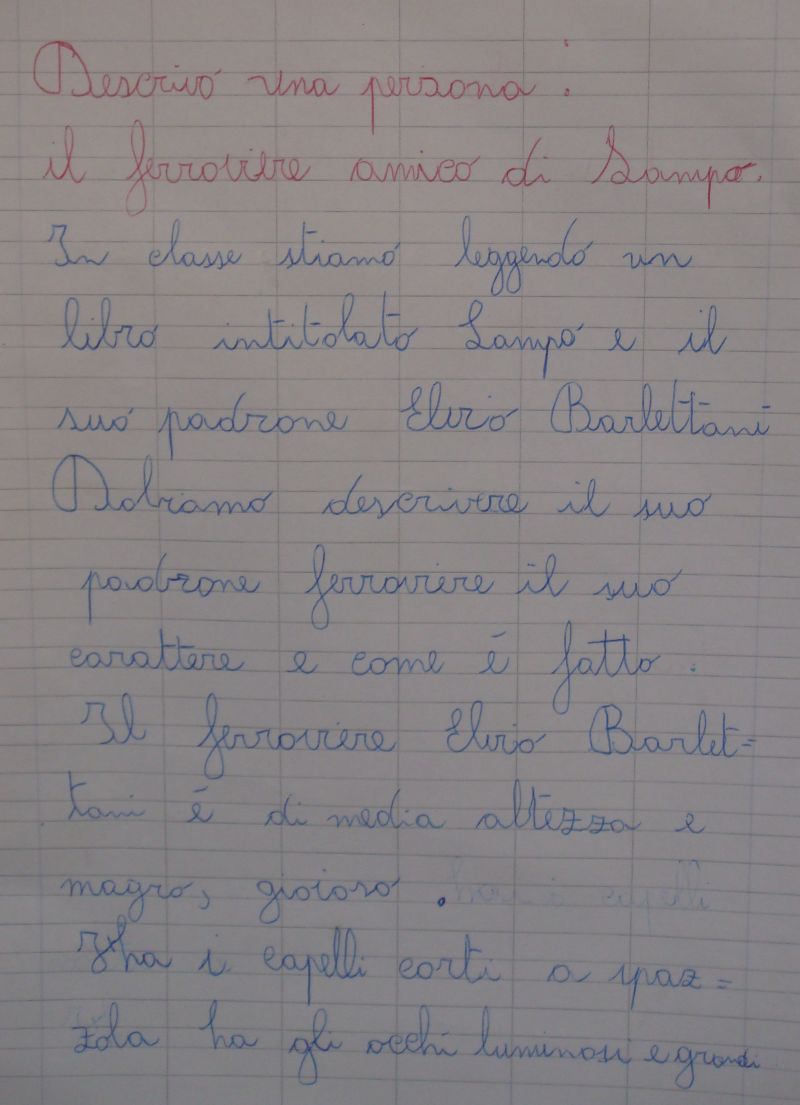 Descrivo una persona:
il ferroviere amico di Lampo.
In classe stiamo leggendo un
libro intitolato Lampo e il
suo padrone Elvio Barlettani
Dobiamo descrivere il suo
padrone ferroviere il suo
carattere e come é fatto.
Il ferroviere Elvio Barlet=
tani é di media altezza e
magro, gioioso.
ha i capelli corti a spaz=
zola ha gli occhi luminosi e grandi